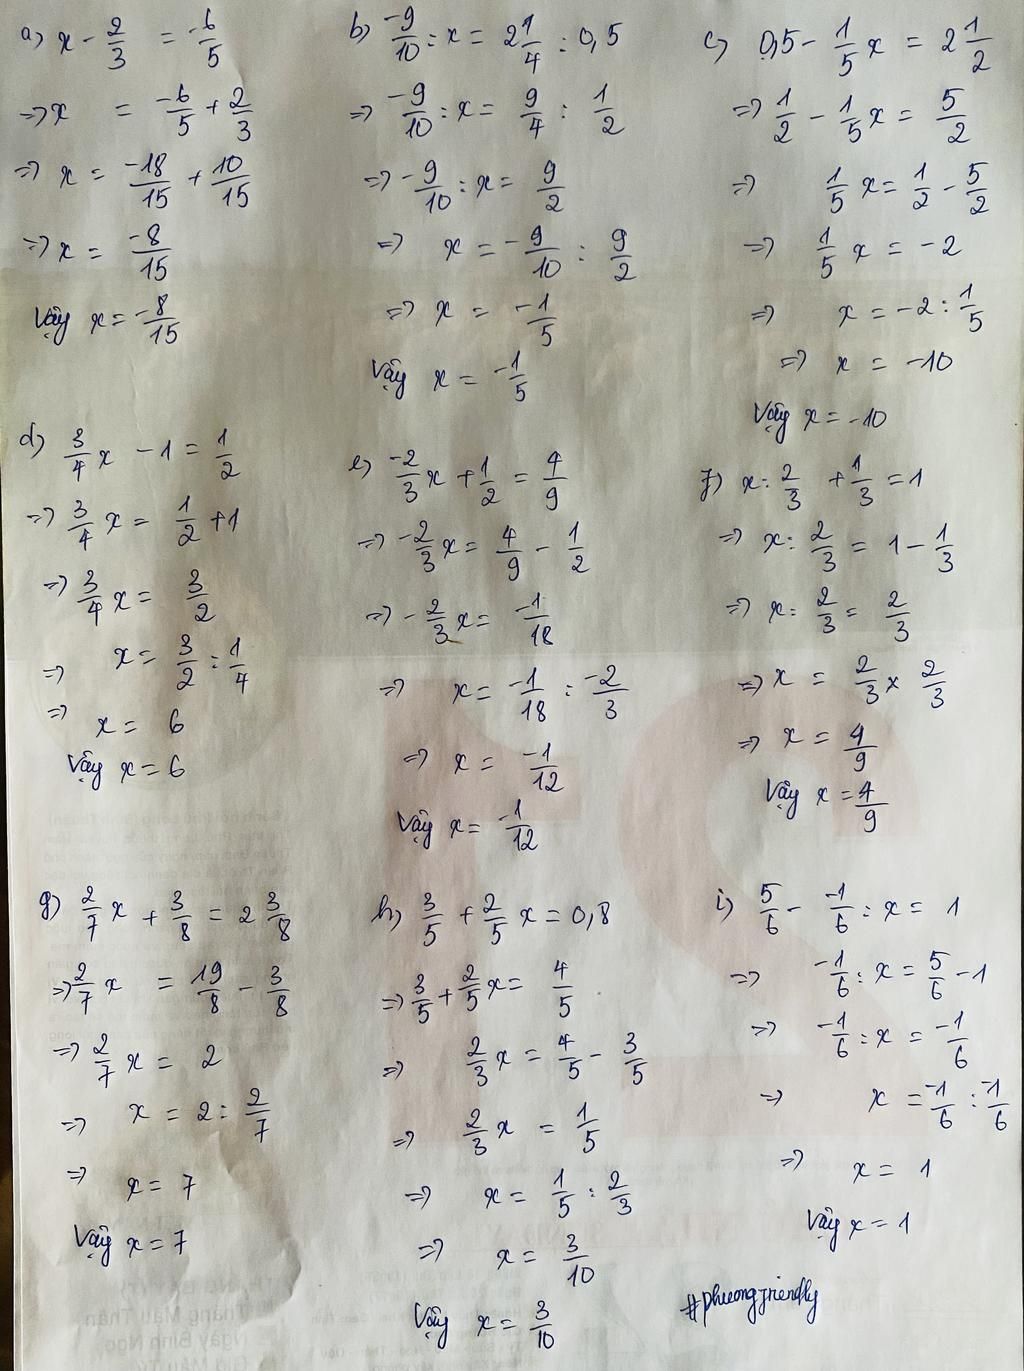 a) x - 2/3 = -6/5
=> x = -6/5 + 2/3
=> x = -18/15 + 10/15
=> x = -8/15
Vậy x = -8/15
b) -9/10 : x = 2 1/4 : 0,5
=> -9/10 : x = 9/4 : 1/2
=> -9/10 : x = 9/2
=> x = -9/10 : 9/2
=> x = -1/5
Vậy x = -1/5
c) 0,5 - 1/5 x = 2 1/2
=> 1/2 - 1/5 x = 5/2
=> 1/5 x = 1/2 - 5/2
=> 1/5 x = -2
=> x = -2 : 1/5
=> x = -10
Vậy x = -10
d) 3/4 x - 1 = 1/2
=> 3/4 x = 1/2 + 1
=> 3/4 x = 3/2
=> x = 3/2 : 1/4
=> x = 6
Vậy x = 6
e) -2/3 x + 1/2 = 4/9
=> -2/3 x = 4/9 - 1/2
=> -2/3 x = -1/18
=> x = -1/18 : -2/3
=> x = -1/12
Vậy x = -1/12
f) x : 2/3 + 1/3 = 1
=> x : 2/3 = 1 - 1/3
=> x : 2/3 = 2/3
=> x = 2/3 x 2/3
=> x = 4/9
Vậy x = 4/9
g) 2/7 x + 3/8 = 2 3/8
=> 2/7 x = 19/8 - 3/8
=> 2/7 x = 2
=> x = 2 : 2/7
=> x = 7
Vậy x = 7
h) 3/5 + 2/5 x = 0,8
=> 3/5 + 2/5 x = 4/5
=> 2/3 x = 4/5 - 3/5
=> 2/3 x = 1/5
=> x = 1/5 : 2/3
=> x = 3/10
Vậy x = 3/10
i) 5/6 - -1/6 : x = 1
=> -1/6 : x = 5/6 - 1
=> -1/6 : x = -1/6
=> x = -1/6 : -1/6
=> x = 1
Vậy x = 1
#phuongfriendly